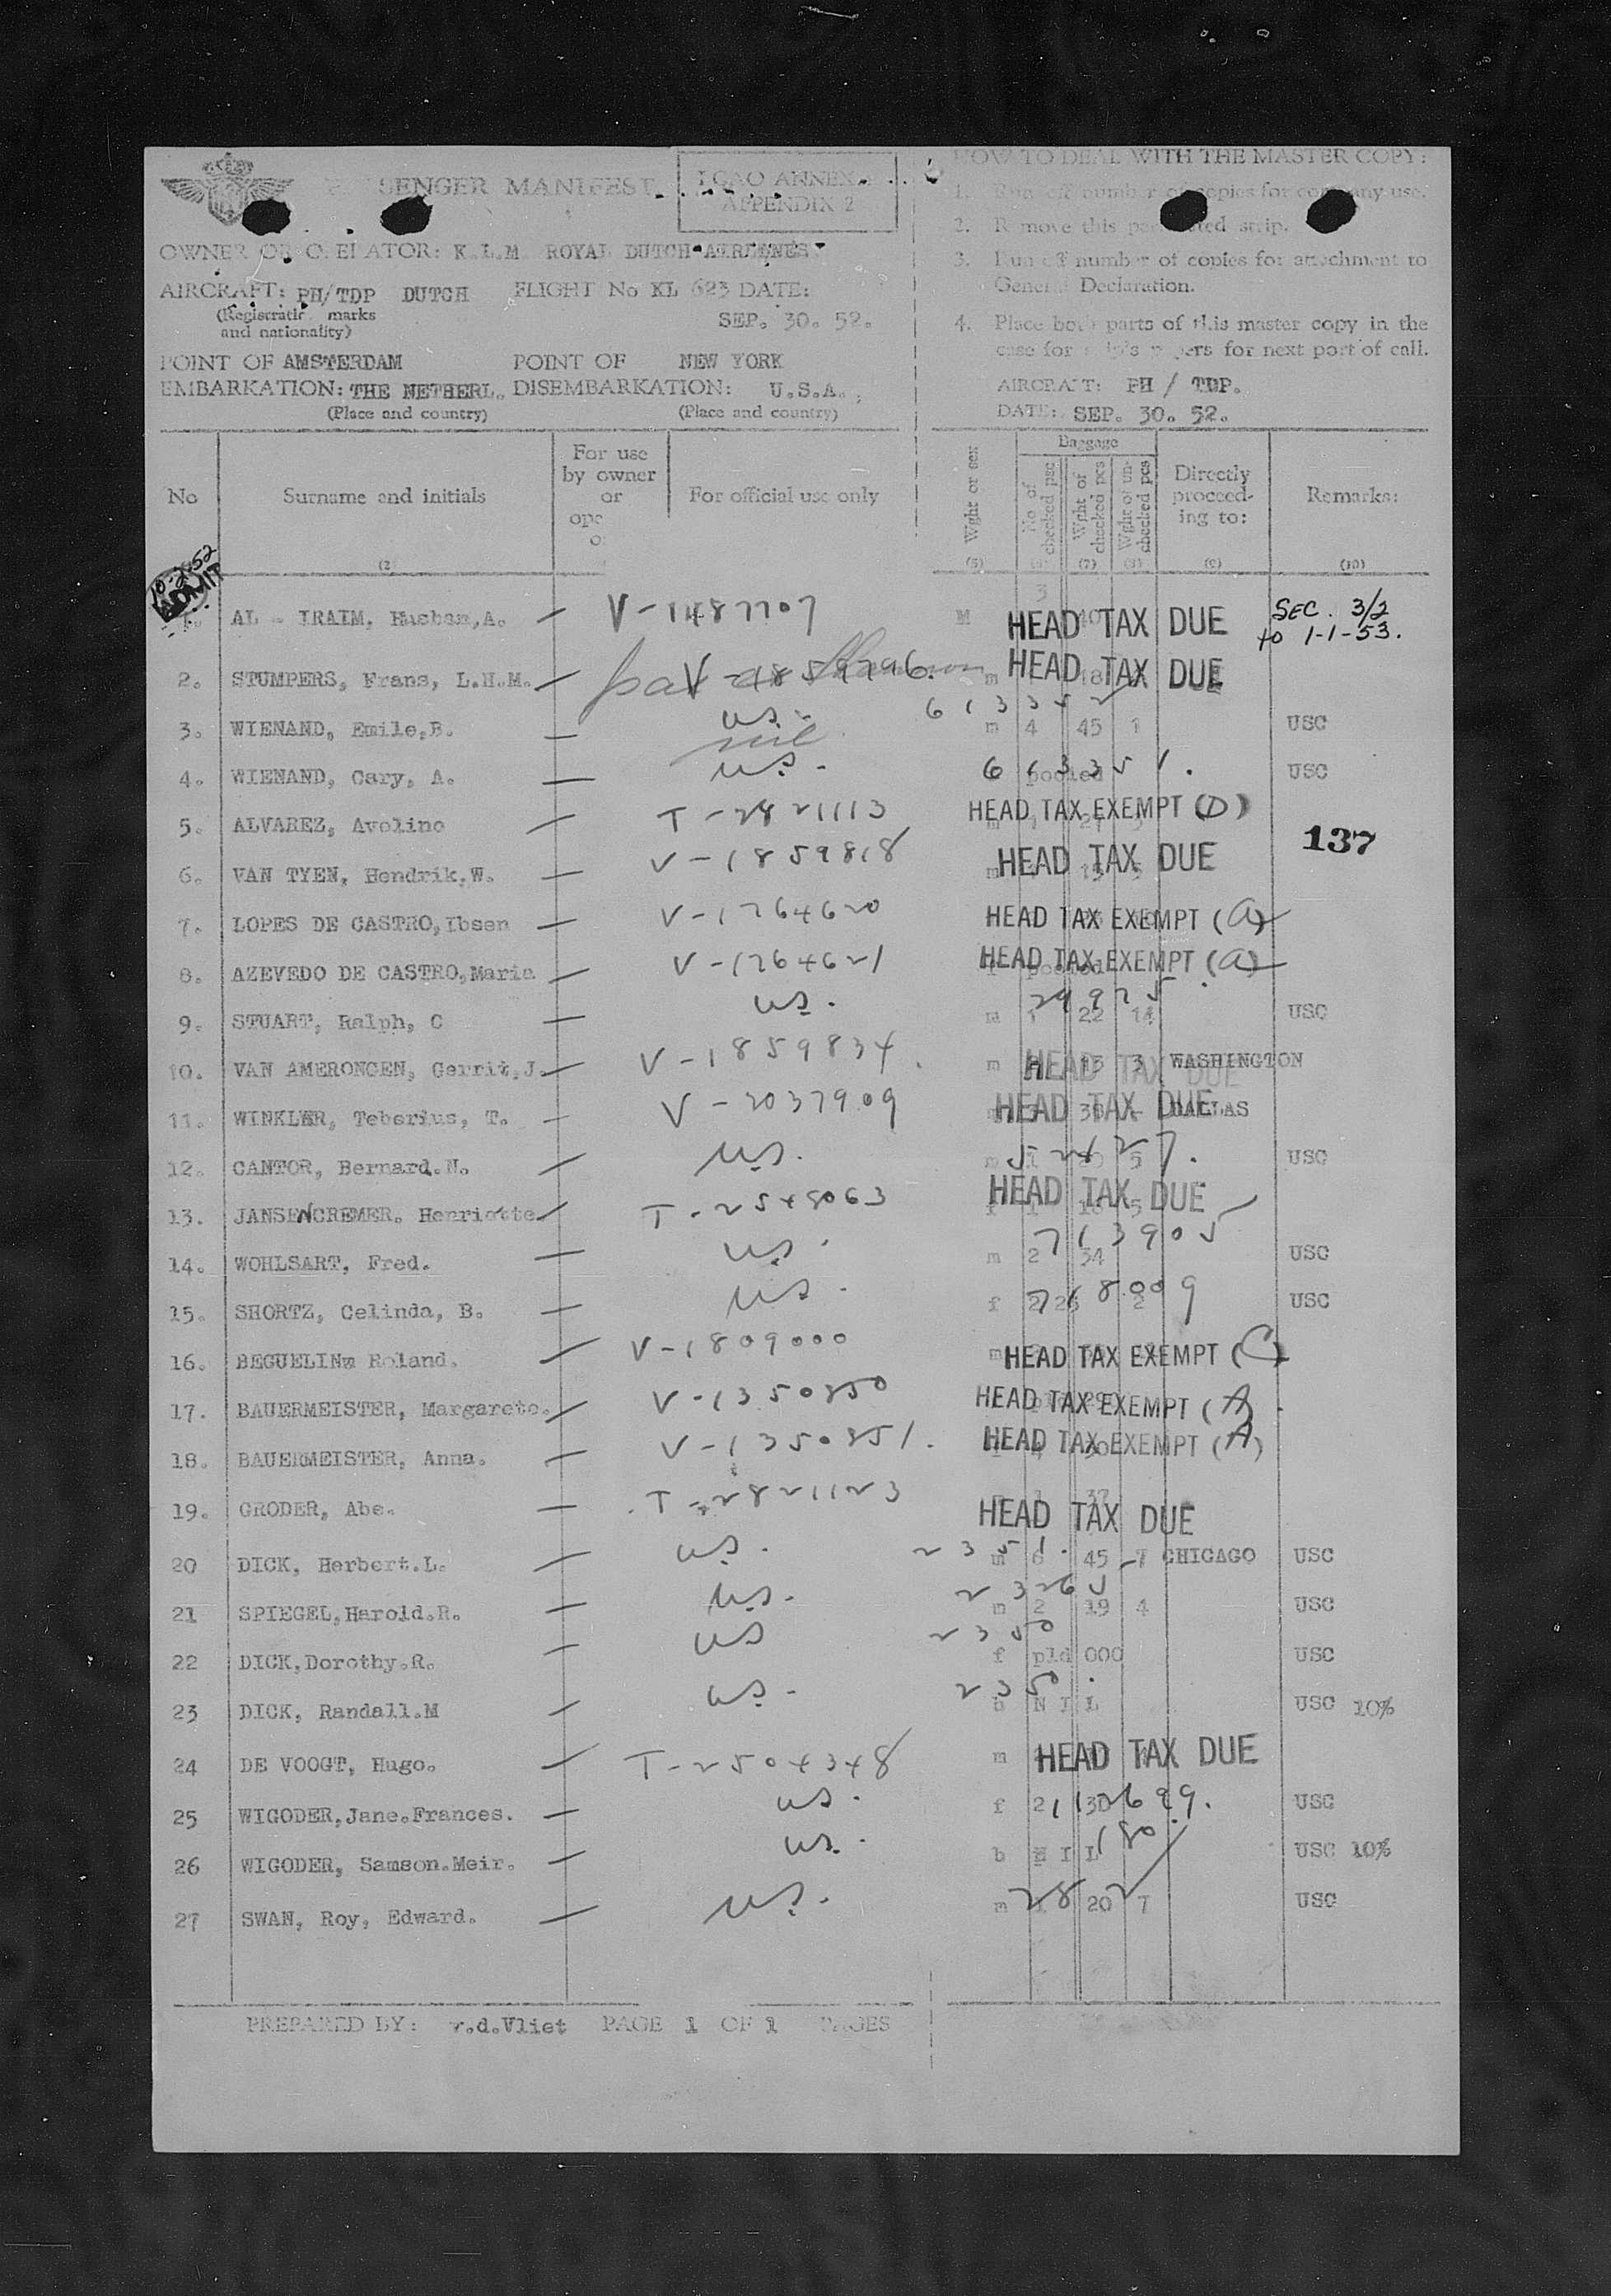 SENGER MANIFEST
ICAO ANNEX
APPENDIX 2
OWNER OR OPERATOR: K.L.M. ROYAL DUTCH AIRLINES
AIRCRAFT: PH/TDP DUTCH FLIGHT No KL 623 DATE:
(Registratic marks
and nationality)
SEP. 30. 52.
POINT OF AMSTERDAM POINT OF NEW YORK
EMBARKATION: THE NETHERL. DISEMBARKATION: U.S.A.
(Place and country) (Place and country)
HOW TO DEAL WITH THE MASTER COPY:
1. Run off number of copies for company use.
2. Remove this perforated strip.
3. Run off number of copies for attachment to
General Declaration.
4. Place both parts of this master copy in the
case for ship's papers for next port of call.
AIRCRAFT: PH / TDP.
DATE: SEP. 30. 52.
No
Surname and initials
(2)
For use
by owner
or
ope
o
For official use only
Wght or sex
(5)
Baggage
No of
checked psc
Wght of
checked pcs
(7)
Wght of un-
checked pcs
Directly
proceed-
ing to:
(9)
Remarks:
(10)
10-2-52
ADMIT
1. AL - IRAIM, A. V-1487707 M HEAD TAX DUE SEC. 3/2
to 1-1-53.
2. STUMPERS, Frans, L.H.M. V-1859796. m HEAD TAX DUE
613352
3. WIENAND, Emile,B. us. m 4 45 1 USC
4. WIENAND, Gary, A. us. 613351. pooled USC
5. ALVAREZ, Avelino T-2821113 HEAD TAX EXEMPT (D)
137
6. VAN TYEN, Hendrik.W. V-1859818 m HEAD TAX DUE
7. LOPES DE CASTRO,Ibsen V-1264620 HEAD TAX EXEMPT (a)
8. AZEVEDO DE CASTRO,Maria V-1264621 HEAD TAX EXEMPT (a)
29925
9. STUART, Ralph, C us. m 1 22 14 USC
10. VAN AMERONGEN, Gerrit,J. V-1859834 m HEAD TAX DUE 3 WASHINGTON
11. WINKLER, Teberius, T. V-2037909 HEAD TAX DUE DALLAS
12. CANTOR, Bernard.N. us. m 52427. USC
13. JANSEN CREMER. Henriette T-2548063 HEAD TAX DUE
713905
14. WOHLSART, Fred. us. m 2 34 USC
15. SHORTZ, Celinda, B. us. f 718009 USC
16. BEGUELIN Roland. V-1809000 m HEAD TAX EXEMPT (C)
17. BAUERMEISTER, Margarete. V-1350850 HEAD TAX EXEMPT (A)
18. BAUERMEISTER, Anna. V-1350851. HEAD TAX EXEMPT (A)
19. GRODER, Abe. T-2821123 HEAD TAX DUE
20 DICK, Herbert.L. us. 2351. m 6 45 7 CHICAGO USC
21 SPIEGEL,Harold.R. us. 23265 m 2 19 4 USC
22 DICK,Dorothy.R. us 2350 f pld 000 USC
23 DICK, Randall.M us. 2350. b N I L USC 10%
24 DE VOOGT, Hugo. T-2504348 m HEAD TAX DUE
25 WIGODER,Jane.Frances. us. f 2 30 USC
26 WIGODER, Samson.Meir. us. b N I L 180 USC 10%
27 SWAN, Roy, Edward. us. m 2827 20 7 USC
PREPARED BY: v.d.Vliet PAGE 1 OF 1 PAGES